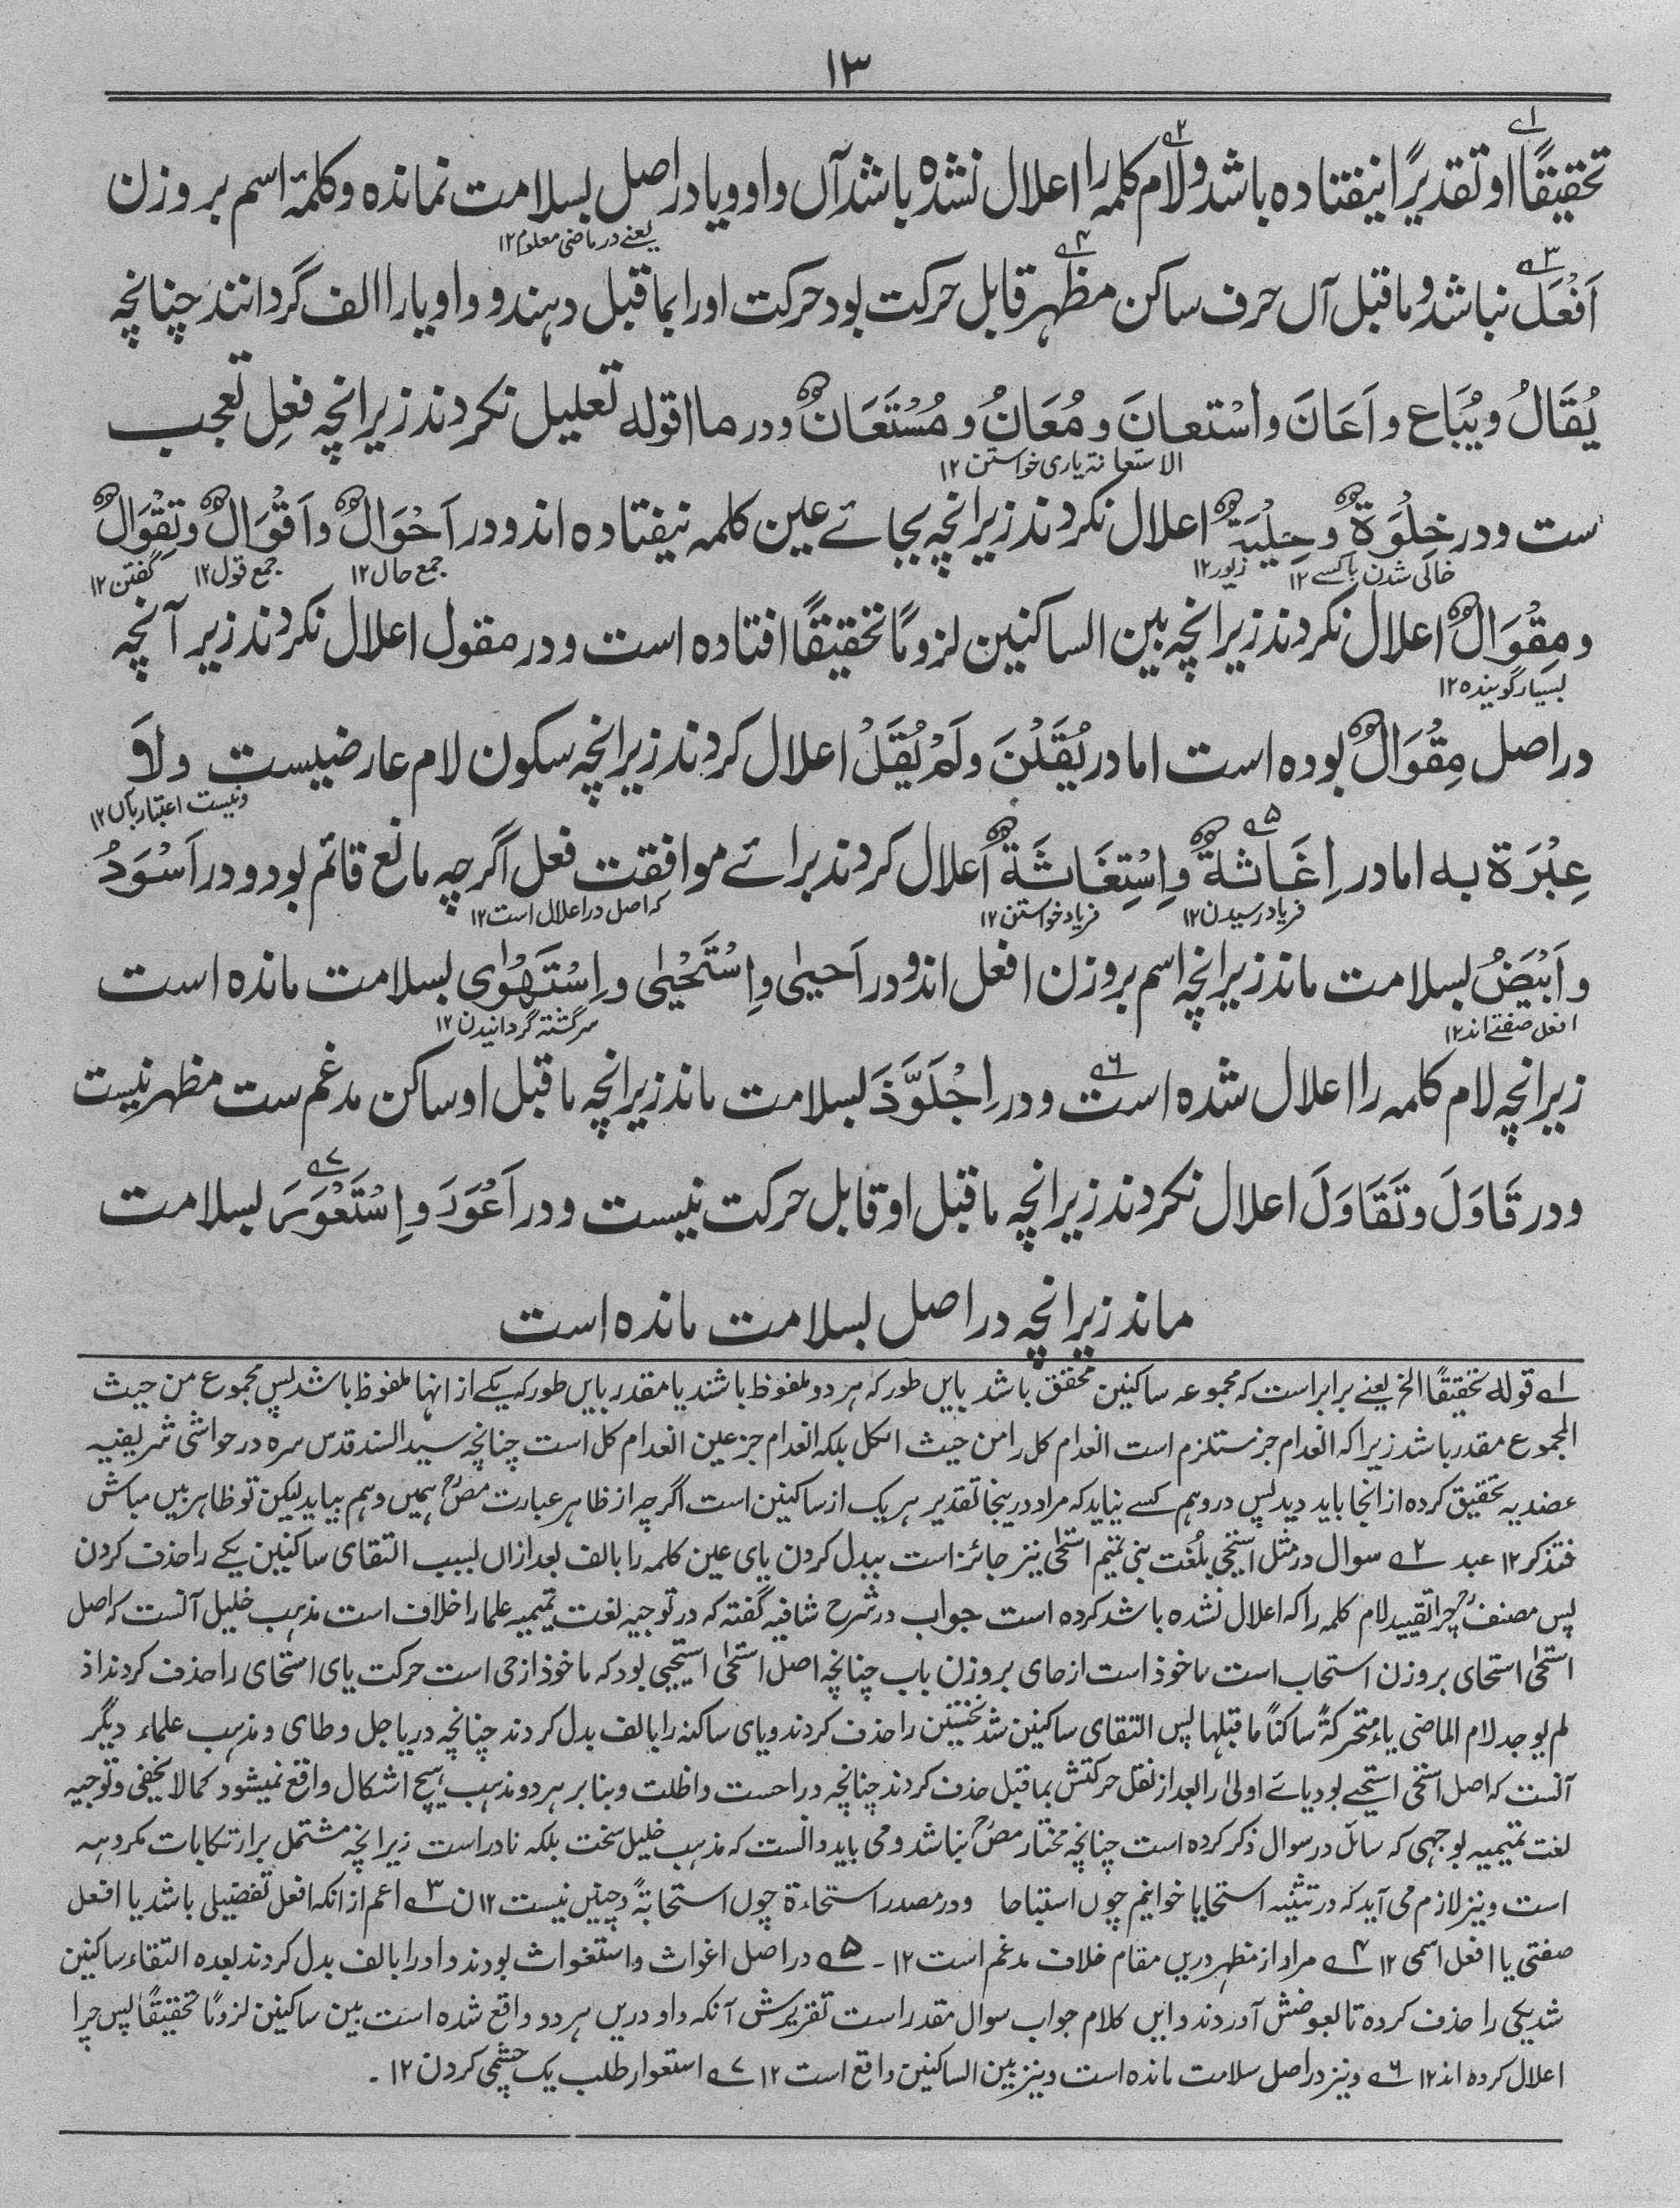 ۱۳
تحقیقًا او تقدیرًا نیفتاده باشد و لام کلمہ را اعلال نشده باشد آں واو و یا در اصل بسلامت نمانده و کلمۂ اسم بر وزن
یعنے در ماضی معلوم ۱۲
اَفْعَلَ نباشد و ما قبل آں حرف ساکن مظہر قابل حرکت بود حرکت او را بما قبل دہند و واو یا را الف گردانند چنانچہ
یُقَالُ و یُبَاع و اَعَانَ و اسْتعانَ و مُعَانٌ و مُسْتَعَانٌ و در ما اقولہ تعلیل نکردند زیرانچہ فعلِ تعجب
الاستعانۃ یاری خواستن ۱۲
ست و در خِلْوَۃٌ و حِلْیَۃٌ اعلال نکردند زیرانچہ بجائے عین کلمہ نیفتاده اند و در اَحْوَالٌ و اَقْوَالٌ و تِقْوَالٌ
خالی شدن باکسے ۱۲ زیور ۱۲ جمع حال ۱۲ جمع قول ۱۲ گفتن ۱۲
و مِقْوَالٌ اعلال نکردند زیرانچہ بین الساکنین لزومًا تحقیقًا افتاده است و در مقول اعلال نکردند زیر آنچہ
بسیار گوینده ۱۲
در اصل مِقْوَالٌ بوده است اما در یُقَلْنَ و لَمْ یُقَلْ اعلال کردند زیرانچہ سکون لام عارضیست و لَا
و نیست اعتبار باں ۱۲
عِبْرَۃ بہ اما در اِغَاثَۃٌ و اِسْتِغَاثَۃٌ اعلال کردند برائے موافقت فعل اگرچہ مانع قائم بود و در اَسْوَدُ
فریاد رسیدن ۱۲ فریاد خواستن ۱۲ کہ اصل در اعلال است ۱۲
و اَبْیَضُ بسلامت ماند زیرانچہ اسم بر وزن افعل اند و در اَحییٰ و اِسْتَحْییٰ و اِسْتَهْوٰی بسلامت مانده است
افعل صفتے اند ۱۲ سرگشتہ گردانیدن ۱۲
زیرانچہ لام کلمہ را اعلال شده است و در اِجْلَوَّذَ بسلامت ماند زیرانچہ ما قبل او ساکن مدغم ست مظہر نیست
و در قَاوَلَ و تَقَاوَلَ اعلال نکردند زیرانچہ ما قبل او قابل حرکت نیست و در اَعْوَرَ و اِسْتَعْوَرَ بسلامت
ماند زیرانچہ در اصل بسلامت مانده است
۱؎ قولہ تحقیقًا الخ یعنے برابر است کہ مجموعہ ساکنین محقق باشد بایں طور کہ ہر دو ملفوظ باشند یا مقدر بایں طور کہ یکے از انہا ملفوظ باشد پس مجموع من حیث
المجموع مقدر باشد زیرا کہ انعدام جز مستلزم است انعدام کل را من حیث الکل بلکہ انعدام جز عین انعدام کل است چنانچہ سید السند قدس سره در حواشی شریفیہ
عضدیہ تحقیق کرده از انجا باید دید پس در وہم کسے نیاید کہ مراد درینجا تقدیر ہر یک از ساکنین است اگرچہ از ظاہر عبارت مصؒ ہمیں وہم بیاید لیکن تو ظاہر بیں مباش
فتذکر ۱۲ عبد ۲؎ سوال در مثل استحی بلُغت بنی تمیم استحٰی نیز جائز است ببدل کردن یای عین کلمہ را بالف بعد ازاں بسبب التقای ساکنین یکے را حذف کردن
پس مصنفؒ چرا تقیید لام کلمہ را کہ اعلال نشده باشد کرده است جواب در شرح شافیہ گفتہ کہ در توجیہ لغت تمیمیہ علما را خلاف است مذہب خلیل آنست کہ اصل
استحٰی استحای بر وزن استحاب است ماخوذ است از حای بر وزن باب چنانچہ اصل استحٰی استحیی بود کہ ماخوذ از حی است حرکت یای استحای را حذف کردند اذ
لم یوجد لام الماضی یاءً متحرکۃً ساکنًا ما قبلہا پس التقای ساکنین شد نخستین را حذف کردند و یای ساکنہ را بالف بدل کردند چنانچہ در یاجل و طای و مذہب علماء دیگر
آنست کہ اصل استحٰی استحیے بود یائے اولیٰ را بعد از نقل حرکتش بما قبل حذف کردند چنانچہ در احست و اظلت و بنا بر ہر دو مذہب ہیچ اشکال واقع نمیشود کما لا یخفی و توجیہ
لغت تمیمیہ بوجہی کہ سائل در سوال ذکر کرده است چنانچہ مختار مصؒ نباشد و می باید دانست کہ مذہب خلیل سخت بلکہ نادر است زیرانچہ مشتمل بر ارتکابات مکروہہ
است و نیز لازم می آید کہ در تثنیہ استحایا خوانیم چوں استباحا و در مصدر استحاءۃ چوں استحابۃً و چنیں نیست ۱۲ ن ۳؎ اعم از انکہ افعل تفضیلی باشد یا افعل
صفتی یا افعل اسمی ۱۲ ۴؎ مراد از مظہر دریں مقام خلاف مدغم است ۱۲۔ ۵؎ در اصل اغواث و استغواث بودند واو را بالف بدل کردند بعده التقاء ساکنین
شد یکی را حذف کرده تا بعوضش آوردند و ایں کلام جواب سوال مقدر است تقریرش آنکہ واو دریں ہر دو واقع شده است بین ساکنین لزومًا تحقیقًا پس چرا
اعلال کرده اند ۱۲ ۶؎ و نیز در اصل سلامت مانده است و نیز بین الساکنین واقع است ۱۲ ۷؎ استعوار طلب یک چشمی کردن ۱۲۔